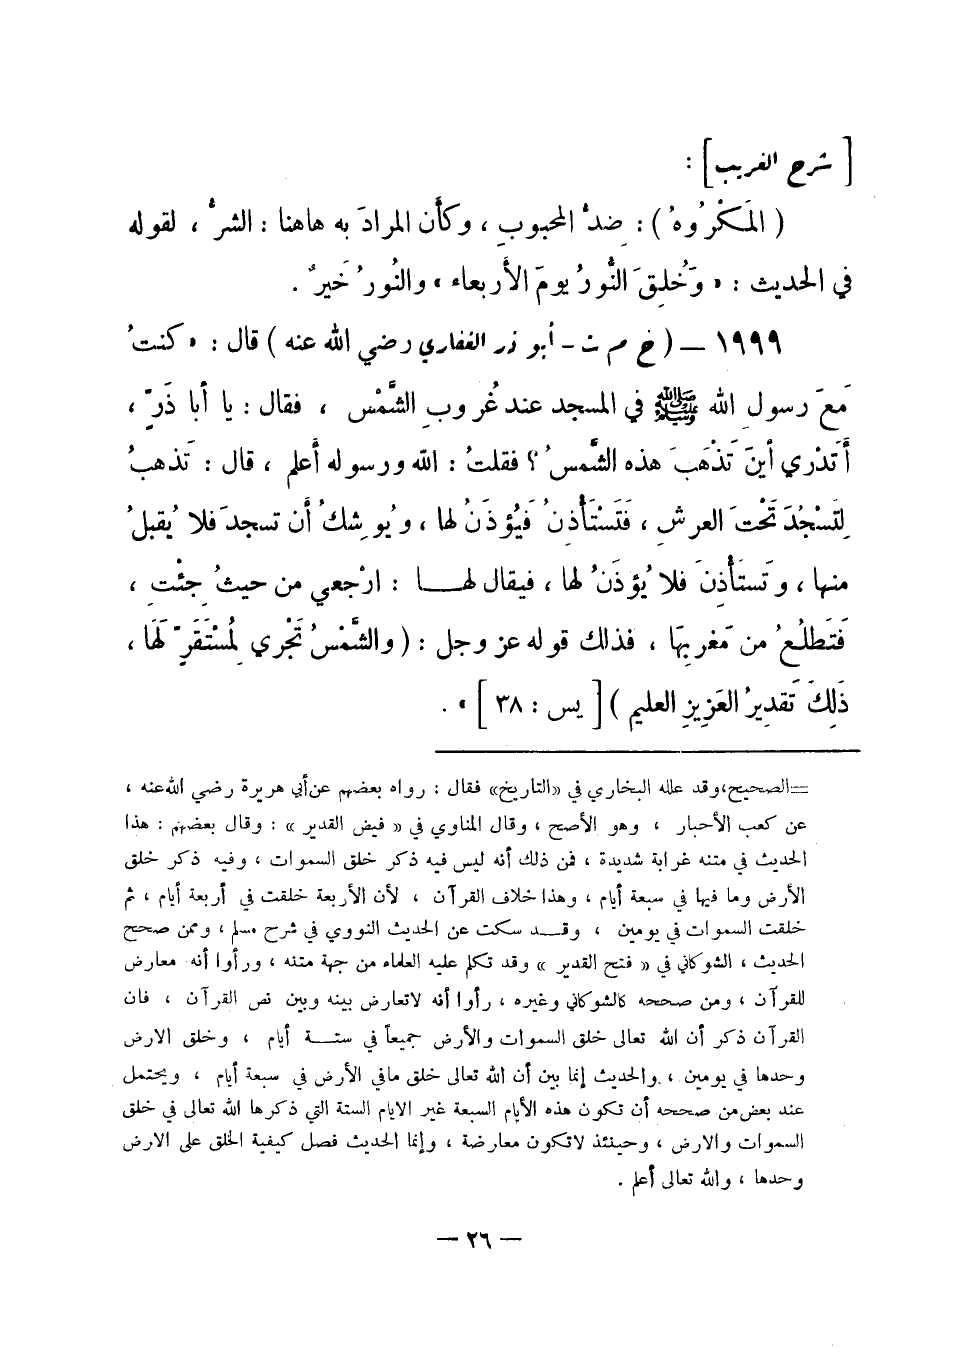 [ شرح الغريب ] :
( المَكْرُوهُ ) : ضدُّ المحبوبِ ، وكأَن المرادَ به هاهنا : الشرُّ ، لقوله
في الحديث : « وَخُلِقَ النُّورُ يومَ الأَربعاء » والنُورُ خَيرٌ .
١٩٩٩ — ( خ م ت - أبو ذر الغفاري رضي الله عنه ) قال : « كنتُ
مَعَ رسول الله ﷺ في المسجد عند غُروبِ الشَّمْسِ ، فقال : يا أبا ذَرٍّ ،
أَتَدْري أينَ تَذْهَبَ هذه الشَّمسُ ؟ فقلتُ : الله ورسوله أعلم ، قال : تَذهبُ
لِتَسْجُدَ تَحْتَ العرشِ ، فَتَسْتَأْذِنُ فَيُؤذَنُ لها ، ويُوشِكُ أَن تسجدَ فلا يُقبلُ
منها ، وتَستَأْذِنَ فلا يُؤذَنُ لها ، فيقال لهــا : ارْجعي من حيثُ جِئْتِ ،
فَتَطلُعُ من مَغربِهَا ، فذلك قوله عز وجل : ( والشَّمْسُ تَجْري لِمُسْتَقَرٍّ لَهَا ،
ذَلِكَ تَقديرُ العَزِيزِ العليم ) [ يس : ٣٨ ] » .
==الصحيح،وقد علله البخاري في «التاريخ» فقال : رواه بعضهم عن أبي هريرة رضي الله عنه ،
عن كعب الأحبار ، وهو الأصح ، وقال المناوي في « فيض القدير » : وقال بعضهم : هذا
الحديث في متنه غرابة شديدة ، فمن ذلك أنه ليس فيه ذكر خلق السموات ، وفيه ذكر خلق
الأرض وما فيها في سبعة أيام ، وهذا خلاف القرآن ، لأن الأربعة خلقت في أربعة أيام ، ثم
خلقت السموات في يومين ، وقــد سكت عن الحديث النووي في شرح مسلم ، وممن صحح
الحديث ، الشوكاني في « فتح القدير » وقد تكلم عليه العلماء من جهة متنه ، ورأوا أنه معارض
للقرآن ، ومن صححه كالشوكاني وغيره ، رأوا أنه لاتعارض بينه وبين نص القرآن ، فان
القرآن ذكر أن الله تعالى خلق السموات والأرض جميعاً في ستــة أيام ، وخلق الارض
وحدها في يومين ، والحديث إنما بين أن الله تعالى خلق مافي الأرض في سبعة أيام ، ويحتمل
عند بعض من صححه أن تكون هذه الأيام السبعة غير الايام الستة التي ذكرها الله تعالى في خلق
السموات والارض ، وحينئذ لاتكون معارضة ، وإنما الحديث فصل كيفية الخلق على الارض
وحدها ، والله تعالى أعلم .
— ٢٦ —